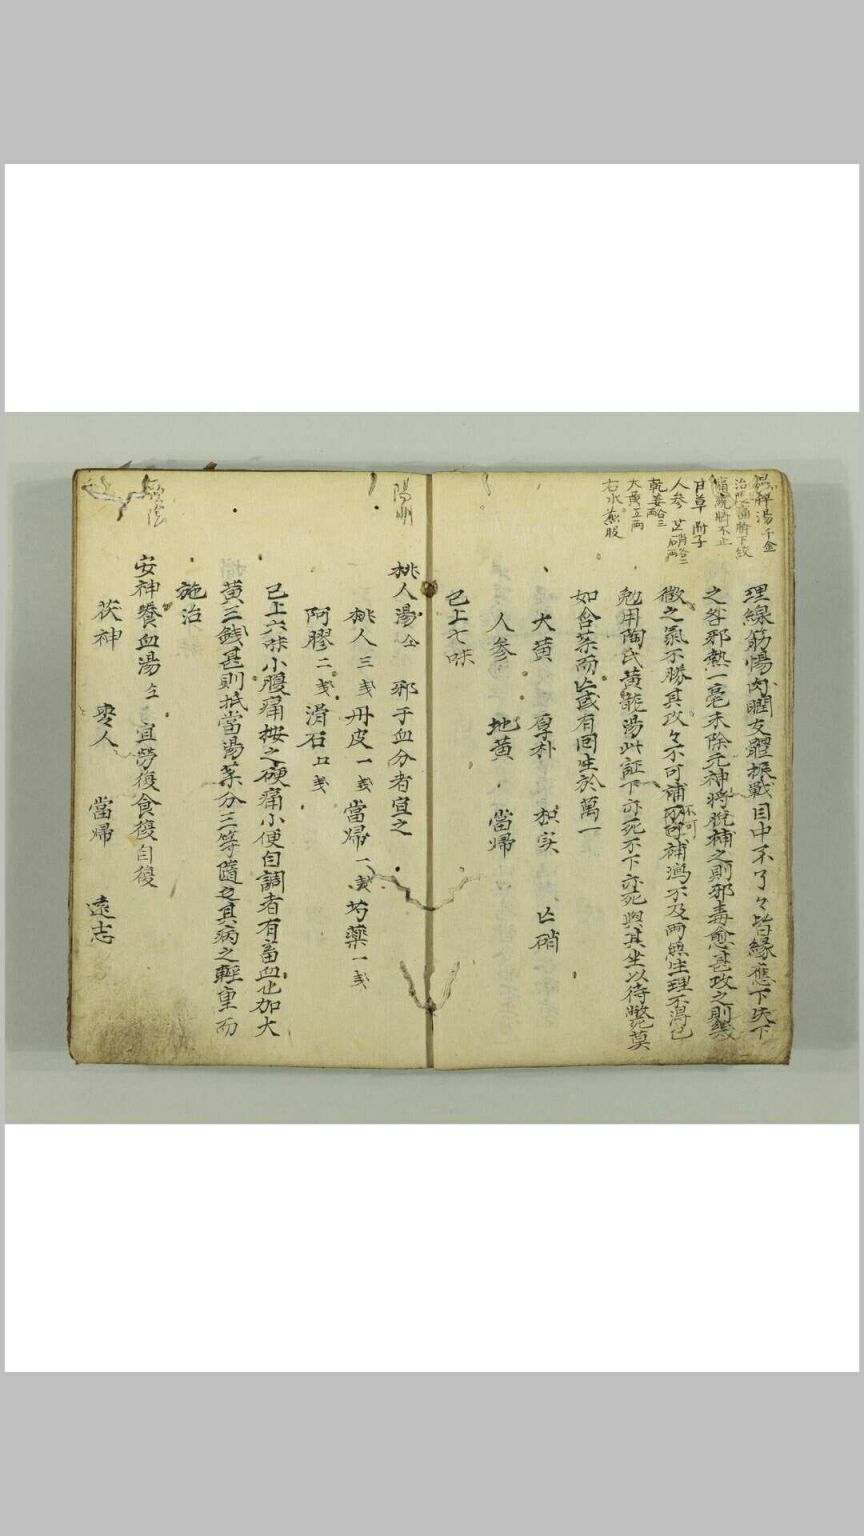 温脾湯 千金
治腹痛臍下絞
痛繞臍不止
甘草 附子
人參 芒硝各二
乾姜各三兩
大黃五兩
右水煎服
理線筋惕肉瞤支體振戰目中不了々皆緣應下失下
之咎邪熱一毫未除元神將脫補之則邪毒愈甚攻之則幾
微之氣不勝其攻々不可補不可補瀉不及兩無生理不得已
勉用陶氏黃龍湯此証下亦死不下亦死與其坐以待斃莫
如含茶而亡或有回生於萬一
大黃 厚朴 枳实 亡硝
人參 地黃 當帰
已上七味
陽明
桃人湯 仝 邪于血分者宜之
桃人三戋 丹皮一戋 當帰一戋 芍藥一戋
阿膠二戋 滑石五戋
已上六味小腹痛按之硬痛小便自調者有畜血也加大
黃三錢甚則抵當湯藥分三等隨其病之輕重而
施治
安神養血湯 仝 宜勞復食復自復
茯神 棗人 當帰 遠志